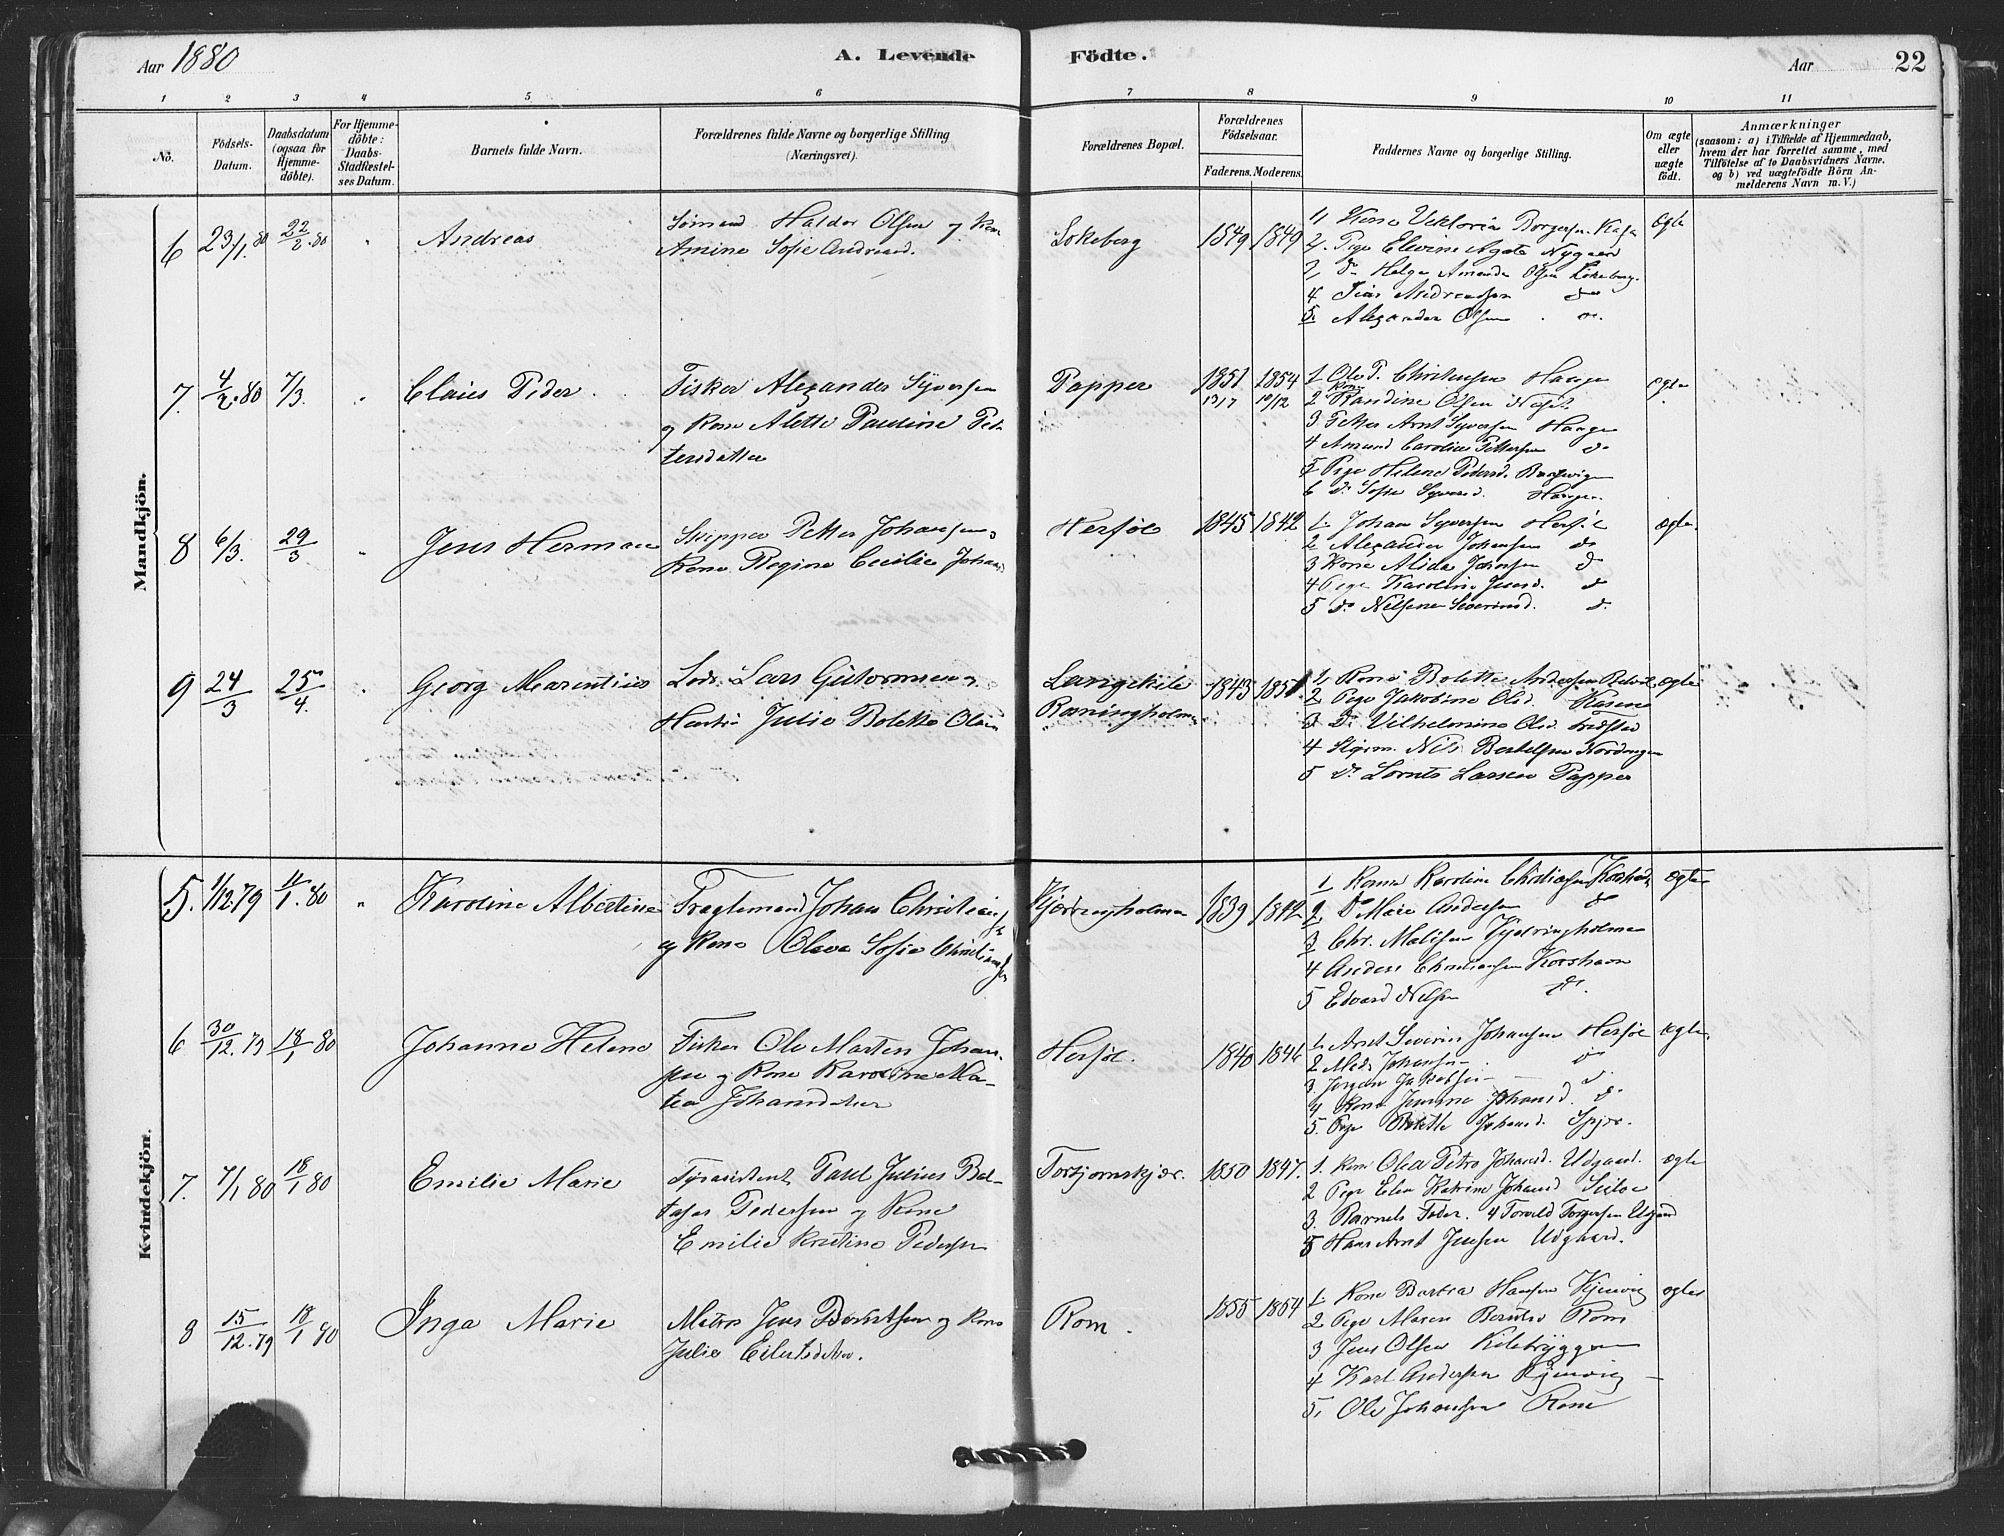 Aar 1880
A. Levende Födte.
Aar
22
1 2 3 4 5 6 7 8 9 10 11
No.
Födsels-Datum.
Daabsdatum (ogsaa for Hjemmedöbte).
For Hjemmedöbte: Daabs-Stadfæstelses Datum.
Barnets fulde Navn.
Forældrenes fulde Navne og borgerlige Stilling (Næringsvei).
Forældrenes Bopæl.
Forældrenes Födselsaar.
Faderens. Moderens.
Faddernes Navne og borgerlige Stilling.
Om ægte eller uægte födt.
Anmærkninger
(saasom: a) i Tilfælde af Hjemmedaab, hvem der har forrettet samme, med Tilföielse af to Daabsvidners Navne. og b) ved uægtefödte Börn Anmelderens Navn m. V.)
Mandkjön.
6 23/1.80 22/2.80 " Andreas
Sömand Haldor Olsen og Kone
Amine Sofie Andreasd.
Lökeberg 1849 1849
1, Kone Viktoria Borgersen
2. Pige Elevine Agate Nygaard
do Helga Amanda Olsen Lökeberg
4 Andreassen do
5. Alexander Olsen do.
Ægte
7. 4/2.80 7/3. " Claus Peder
Fisker Alexander Syversen
og Kone Alette Pauline Pe-
tersdatter
Papper 1851 1854
13/7 10/12
1. Ole P. Christensen Hauge
2 Kone Randine Olsen
3 Petter Arnt Syversen Hauge
4 Amund Caroline Pettersen do
5 Pige Helene Pedersd.
6 do Sofie Syversd. Haugen.
ægte
8 6/3. 29/3 " Jens Herman
Skipper Petter Johansen
Kone Regine Cecilie Johansd
Herföl 1845 1842
1. Johan Syversen Herföl
2 Alexander Johansen do
3 Kone Alida Johansen do
4 Pige Karoline Jensd. do
5 do Nilsine Severinsd. do.
ægte
9 24/3 25/4. " Georg Marentius
Lods Lars Guttormsen
Hustru Julie Bolette
Langekile 1843 1851.
1. Kone Bolette Andersen
2 Pige Jakobine Olsd.
3 do Vilhelmine Olsd.
4 Nils Bertelsen
5 do Lornts Larsen Papper
ægte
Kvindekjön.
5. 1/12.79 4/1.80 " Karoline Albertine
Johan Christiansen
og Kone Olava Sofie Christiansen
Kjedringholmen 1839 1842
1 Kone Karoline Christiansen Korshavn
2. do Marie Andersen do
3 Chr. Mathisen Kjedringholmen
4 Anders Christiansen Korshavn
5 Edvard Nilsen do.
Ægte
6 30/12.79 18/1 80 Johanne Helene
Fisker Ole Martin Johan-
sen og Kone Karoline Ma-
tea Johansdatter
Herföl. 1840 1846
1. Arnt Severin Johansen Herföl
2 Mads Johansen do
3. Jörgen Jakobsen do
4 Kone Johansd. do
5. Pige Bolette Johansd. Spjær.
Ægte
7. 7/1 80 18/1 80 Emilie Marie
Fyrassistent Paul Julius Bal-
tasar Pedersen og Kone
Emilie Kristine Pedersen
Torbjornskjær. 1850 1847.
1. Kone Olea Petra Johansd. Udgaard.
2 Pige Elen Katrine Johansd
3. Barnets Fader. 4 Torvald Torgersen
5 Hans Arnt Jensen Udgaard.
Ægte
8 15/12.79 18/1 80 Inga Marie
Matros Jens Berntsen og Kone
Julie Eilertsdatter.
Rom. 1855 1854
1. Kone Hansen Kjenvig
2 Pige Maren Rom
3 Jens Olsen Kilebryggen
4 Karl Andersen Kjenvig
5, Ole Johansen Rom
ægte